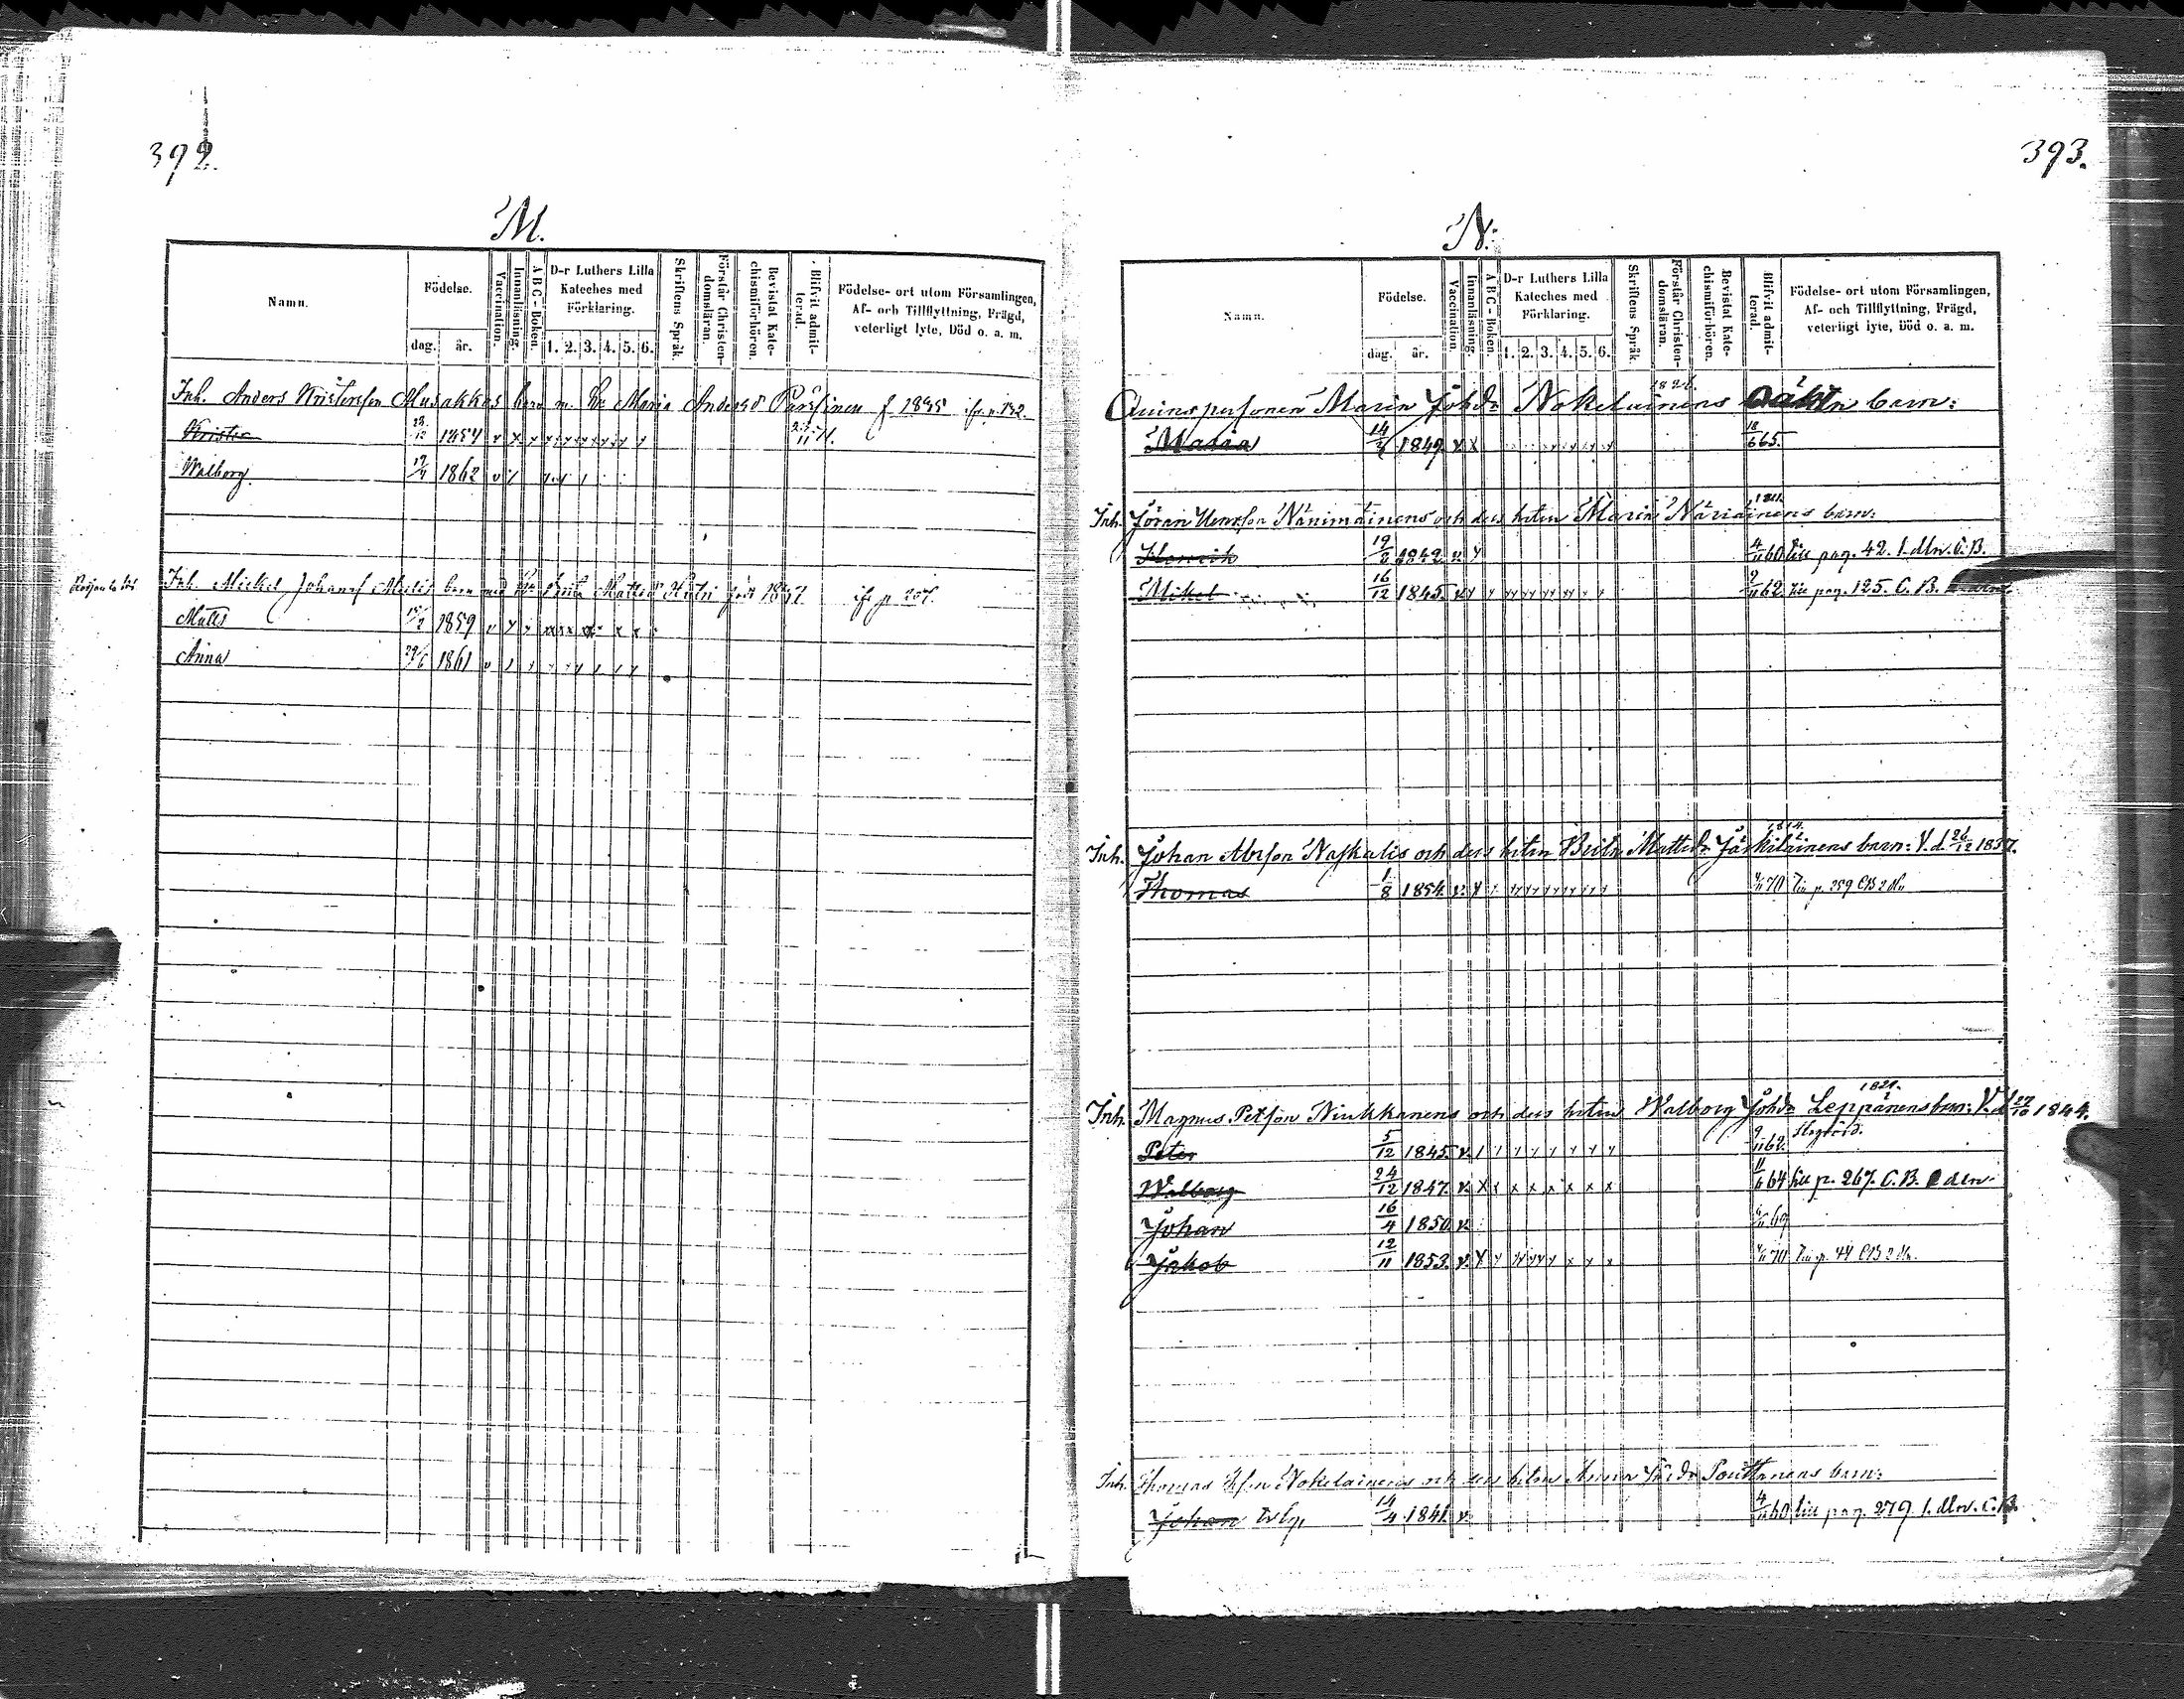 392.
M.
Namn.
Födelse.
dag.
år.
Vaccination.
Innanläsning.
A B C - Boken.
D-r Luthers Lilla
Kateches med
Förklaring.
1. 2. 3. 4. 5. 6.
Skriftens Språk.
Förstår Christen-
domsläran.
Bevistat Kate-
chismiförhören.
Blifvit admit-
terad.
Födelse- ort utom Församlingen,
Af- och Tillflyttning, Frägd,
veterligt lyte, Död o. a. m.
Inh. Anders Kristersson Musakkas barn m. Maria Andersd Pärssinen f 1835
Krister 1854
Walborg 17/4 1862
Inh. Mickel Johansf barn med Mattsd
Matts 1859
Anna 29/6 1861
393.
N.
Namn.
Födelse.
dag.
år.
Vaccination.
Innanläsning.
A B C - Boken.
D-r Luthers Lilla
Kateches med
Förklaring.
1. 2. 3. 4. 5. 6.
Skriftens Språk.
Förstår Christen-
domsläran.
Bevistat Kate-
chismiförhören.
Blifvit admit-
terad.
Födelse- ort utom Församlingen,
Af- och Tillflyttning, Frägd,
veterligt lyte, Död o. a. m.
Qvinspersonen Maria Johdr Nokelainens oäkta barn:
Maria 1849 18/6 65.
Inh. Jöran Henrsson Nänimäinens och dess hstru Maria Näriäinens barn:
Henrik 19/8 1842 4/11 60 till pag. 42. 1. dln. C. B.
Mikel 16/12 1845 62 till pag. 125. C. B.
1814.
Inh. Johan Abrsson Naskalis och dess hstru Beita Mattsdr Jäskiläinens barn: V. d. 26/12 1837.
Thomas 1/8 1854 70 p. 259 CB 2 dln
1821.
Inh. Magnus Petsson Niukkanens och dess hstru Walborg Johdr Leppänens barn: V. d. 27/10 1844.
Peter 5/12 1845 9/11 62.
Walborg 24/12 1847 64 till p. 267. C. B. dln
Johan 16/4 1850 69
Jakob 12/11 1853 70 p. 44 CB 2 dln.
Inh. Thomas Nokelainens och dess hstru Anna Pouttanens barn:
Johan 14/4 1841 4/11 60 till pag. 279 1. dln. C. B.